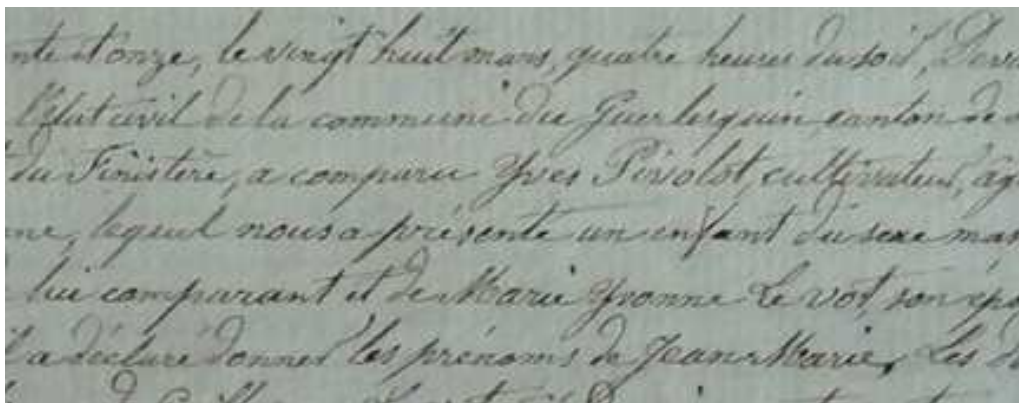 nte et onze, le vingt huit mars, quatre heures du soir, Deva
l'Etat civil de la commune du Guerlesquin, canton de
du Finistère, a comparu Yves Pirolot, cultivateur, âg
ne, lequel nous a présenté un enfant du sexe mas
lui comparant et de Marie Yvonne Le vot, son épo
a déclaré donner les prénoms de Jean Marie. Les d